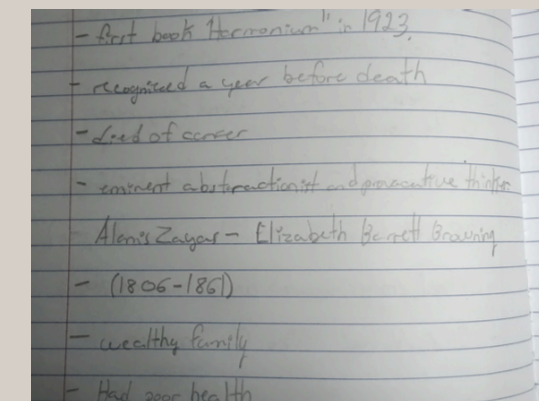 - first book "Harmonium" in 1923.
- recognized a year before death
- died of cancer
- eminent abstractionist and provocative thinker
Alanis Zayas - Elizabeth Barrett Browning
- (1806-1861)
- wealthy family
- Had poor health